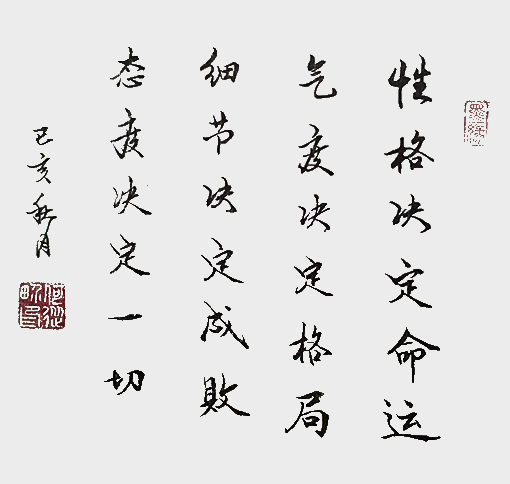 性格决定命运
气度决定格局
细节决定成败
态度决定一切
己亥秋月